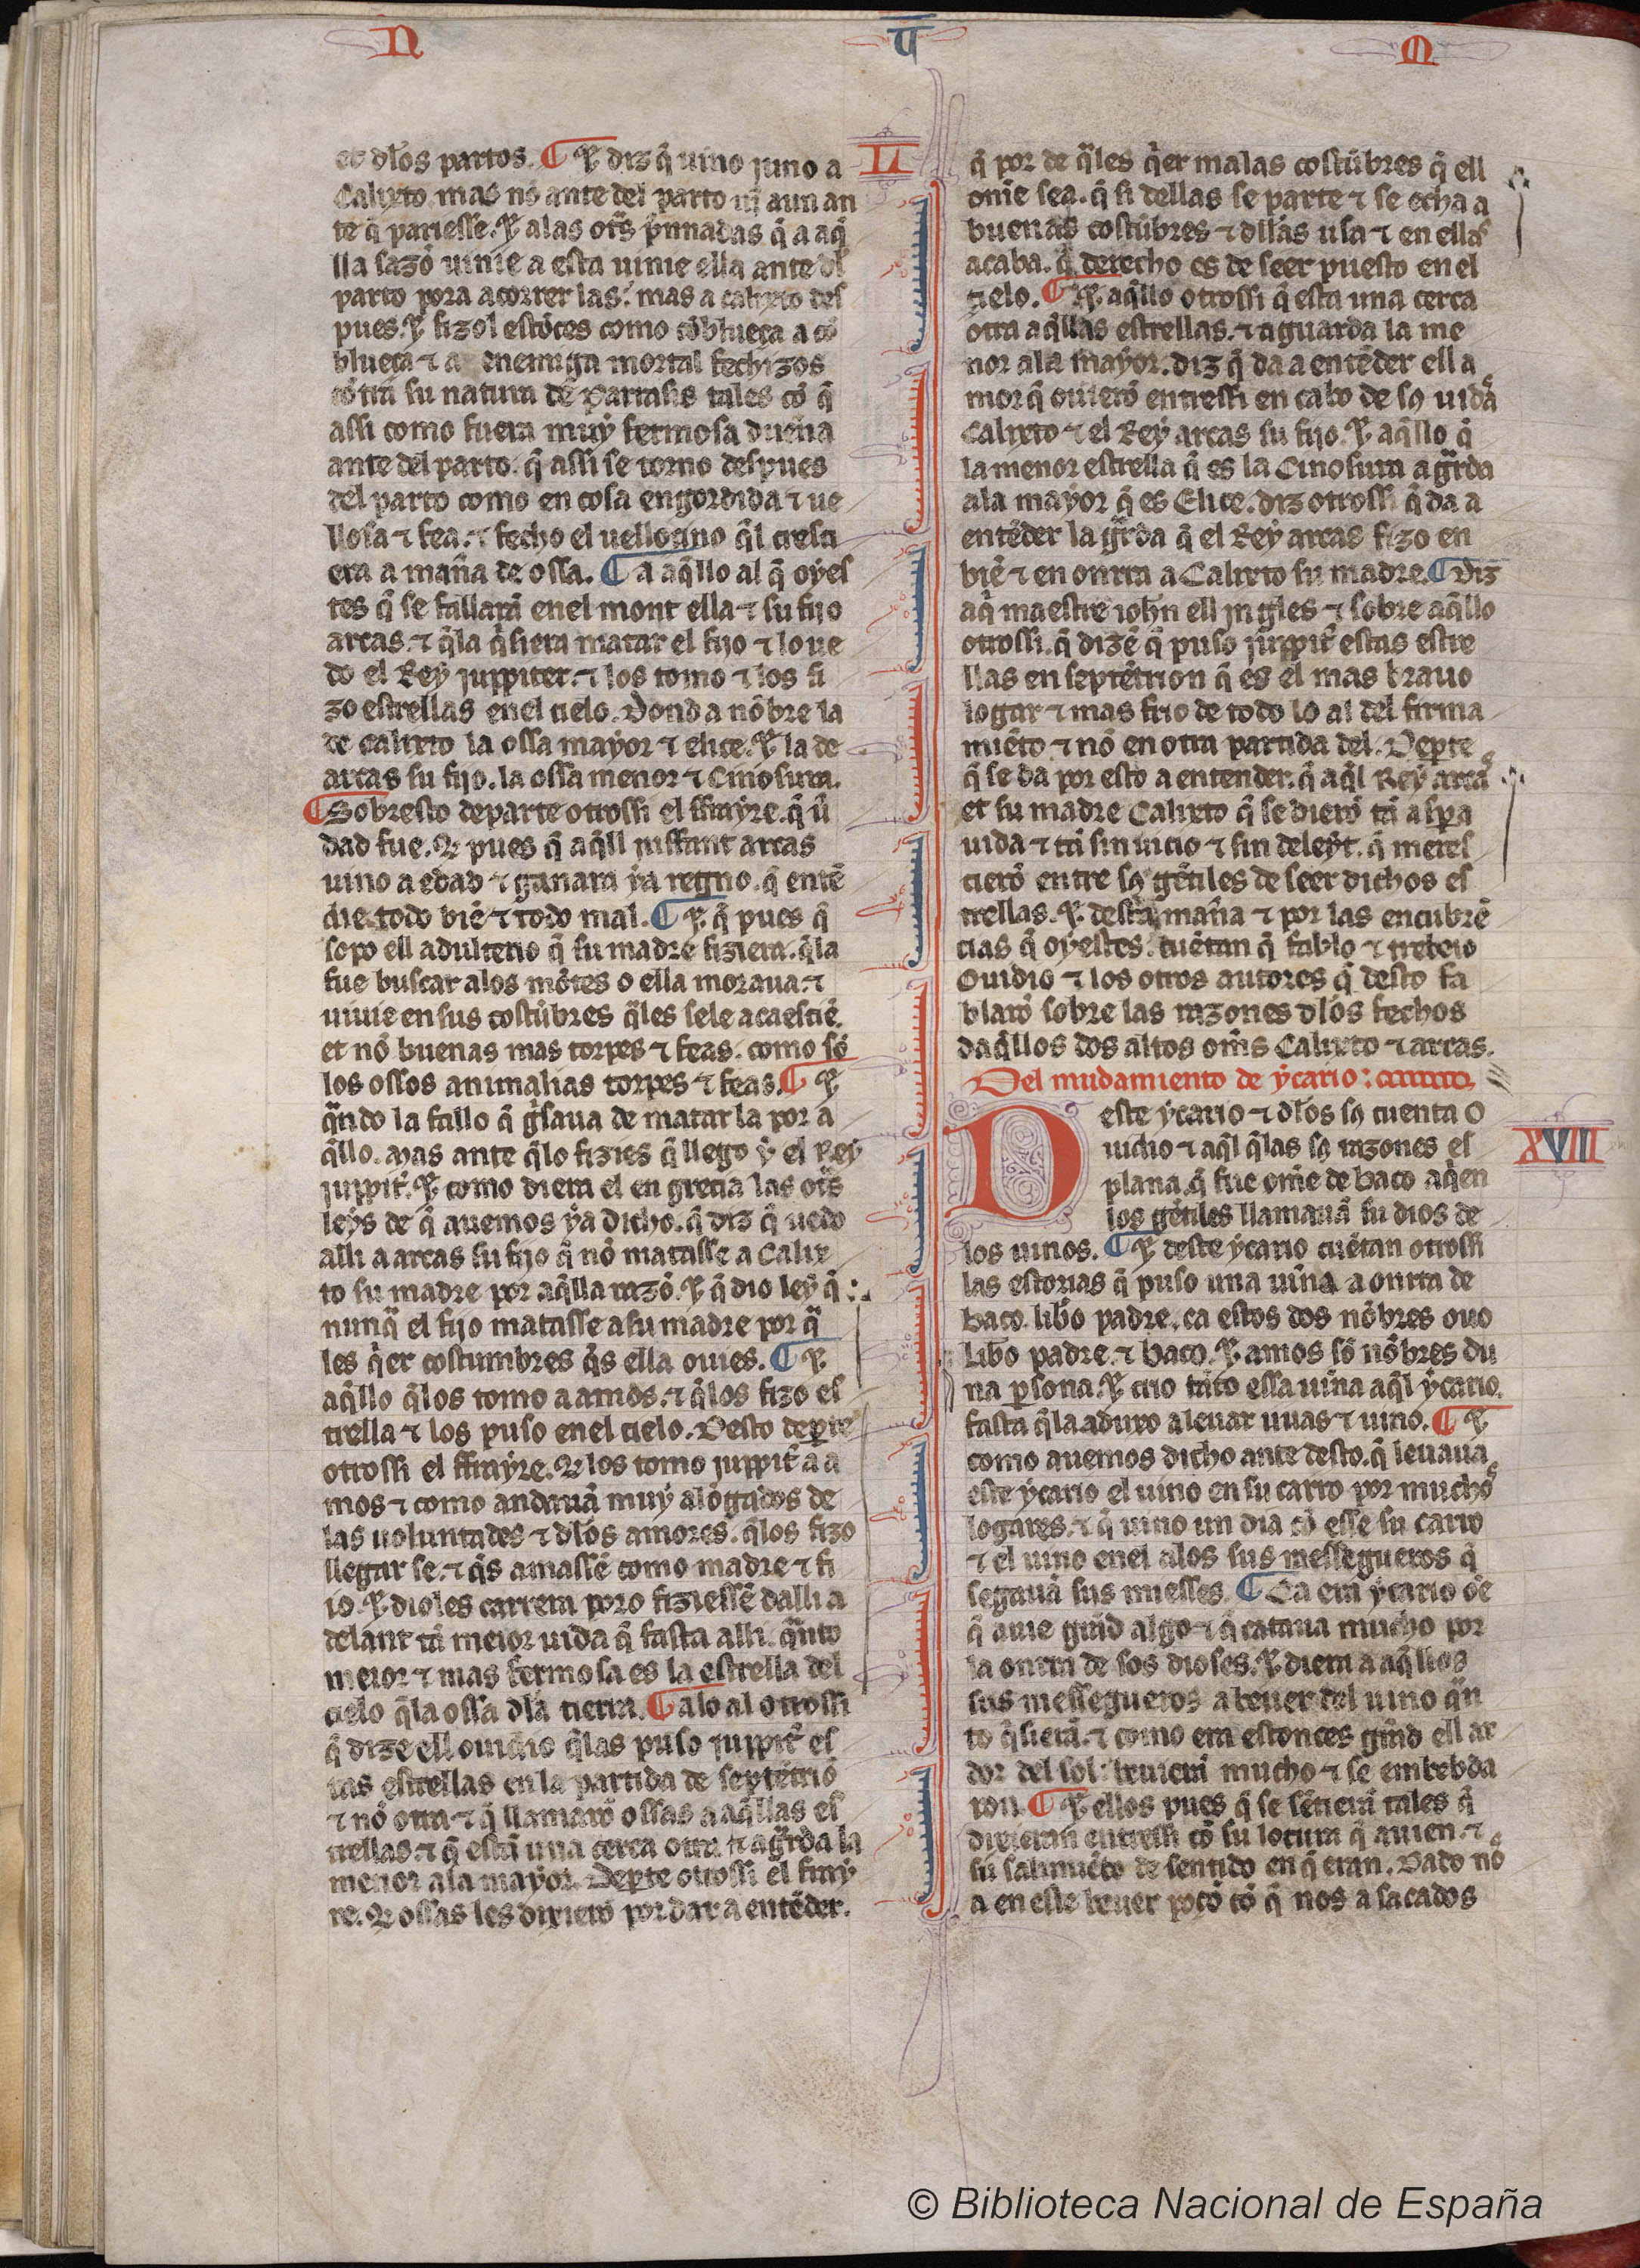 N
U
M
et dlos partos. ¶ Et diz q̃ uino juno a
Calixto. mas nõ ante del parto nĩ aun an
te q̃ pariesse. Et alas otͣs p̃nnadas q̃ a aq̃
lla sazõ uinie a esta uinie ella ante dl
parto pora acorrer las. mas a calixto des
pues. Et fizol estõces como cõblueça a cõ
blueça ⁊ a enemiga mortal fechizos
cõtra su natura de Parrasis tales cõ q̃
assi como fuera muy fermosa duenna
ante del parto. q̃ assi se torno despues
del parto como en cosa engordida ⁊ ue
llosa ⁊ fea. ⁊ fecho el uellozino q̃l cresci
era a mañа de ossa. ¶ a aq̃llo al q̃ oyes
tes q̃ se fallarã enel mont ella ⁊ su fijo
arcas. ⁊ q̃la q̃siera matar el fijo ⁊ lo ue
do el Rey juppiter. ⁊ los tomo ⁊ los fi
zo estrellas enel cielo. Dond a nõbre la
de calixto la ossa mayor ⁊ elice. Et la de
arcas su fijo. la ossa menor ⁊ Cinosura.
¶ Sobresto departe otrossi el ffrayre. q̃ ũ
dad fue. Et pues q̃ aq̃ll jnffant arcas
uino a edad ⁊ ganara ya regno. q̃ entẽ
die todo biẽ ⁊ todo mal. ¶ Et q̃ pues q̃
sopo ell adulterio q̃ su madre fiziera. q̃la
fue buscar alos mõtes o ella moraua. ⁊
uiuie en sus costũbres q̃les sele acaesciẽ.
et nõ buenas mas torpes ⁊ feas. como sõ
los ossos animalias torpes ⁊ feas. ¶ Et
q̃ndo la fallo q̃ g̃saua de matar la por a
q̃llo. Mas ante q̃lo fizies q̃ llego y el Rey
juppit̃. Et como diera el en grecia las otͣs
leys de q̃ auemos ya dicho. q̃ diz q̃ uedo
alli a arcas su fijo q̃ nõ matasse a Calix
to su madre por aq̃lla razõ. Et q̃ dio ley q̃
nunq̃ el fijo matasse a su madre por q̃
les q̃er costumbres q̃s ella ouies. ¶ Et
aq̃llo q̃los tomo a amos. ⁊ q̃los fizo es
trella ⁊ los puso enel cielo. Desto dep̃te
otrossi el ffrayre. Et los tomo juppit̃ a a
mos ⁊ como andauã muy alõgados de
las uoluntades ⁊ dlos amores. q̃los fizo
llegar se. ⁊ q̃s amassẽ como madre ⁊ fi
io. Et dioles carrera poro fiziessẽ dalli a
delant tã meior uida q̃ fasta alli. q̃nto
meior ⁊ mas fermosa es la estrella del
cielo q̃la ossa dla tierra. ¶ alo al otrossi
q̃ dize ell ouidio q̃las puso juppit̃ es
tas estrellas en la partida de septẽtriõ
⁊ nõ otra ⁊ q̃ llamarõ ossas a aq̃llas es
trellas. ⁊ q̃ estã una cerca otra ⁊ ag̃rda la
menor ala mayor. Dep̃te otrossi el fray
re. Et ossas les dixierõ por dar a entẽder.
LI
q̃ por de q̃les q̃er malas costũbres q̃ ell
omẽ sea. q̃ si dellas se parte ⁊ se echa a
buenas costũbres ⁊ dllas usa ⁊ en ellas
acaba. q̃ derecho es de seer puesto en el
cielo. ¶ Et. aq̃llo otrossi q̃ esta una cerca
otra aq̃llas estrellas. ⁊ aguarda la me
nor ala mayor. diz q̃ da a entẽder ell a
mor q̃ ouierõ entressi en cabo de ss uida
Calixto ⁊ el Rey arcas su fijo. Et aq̃llo q̃
la menor estrella q̃ es la Cinosura ag̃rda
ala mayor q̃ es Elice. diz otrossi q̃ da a
entẽder la g̃rda q̃ el Rey arcas fizo en
biẽ ⁊ en onrra a Calixto su madre. ¶ Diz
aq̃ maestre iohñ ell jngles ⁊ sobre aq̃llo
otrossi. q̃ dizẽ q̃ puso juppit̃ estas estre
llas en septẽtrion q̃ es el mas brauo
logar ⁊ mas frio de todo lo al del firma
miẽto ⁊ nõ en otra partida del. Dep̃te
q̃ se da por esto a entender. q̃ aq̃l Rey arcas
et su madre Calixto q̃ se dierõ tã asp̃a
uida ⁊ tã sin uicio ⁊ sin deleyt. q̃ meres
cierõ entre ss gẽtiles de seer dichos es
trellas. Et desta maña ⁊ por las encubrẽ
cias q̃ oyestes. cuẽtan q̃ fablo ⁊ trebeio
Ouidio ⁊ los otros autores q̃ desto fa
blarõ sobre las razones dlos fechos
daq̃llos dos altos omͣs Calixto ⁊ arcas.
Del mudamiento de ycario:
XVII
D este ycario ⁊ dlos ss cuenta O
uidio ⁊ aq̃l q̃las ss razones es
plana. q̃ fue omẽ de baco aq̃en
los gẽtiles llamauã su dios de
los uinos. ¶ Et deste ycario cuẽtan otrossi
las estorias q̃ puso una uiña a onrra de
baco. lib̃o padre. ca estos dos nõbres ouo
Lib̃o padre. ⁊ baco. Et amos sõ nõbres du
na p̃sona. Et crio tãto essa uiña aq̃l ycario.
fasta q̃la aduxo a leuar uuas ⁊ uino. ¶ Et
como auemos dicho ante desto. q̃ leuaua
este ycario el uino en su carro por muchos
logares. ⁊ q̃ uino un dia cõ esse su carro
⁊ el uino enel alos sus messegueros q̃
segauã sus miesses. ¶ Ca era ycario oẽ
q̃ auie grãd algo ⁊ q̃ cataua mucho por
la onrra de sos dioses. Et diera a aq̃llos
sus messegueros a beuer del uino q̃n
to q̃sierã. ⁊ como era estonces grãd ell ar
dor del sol: beuierã mucho ⁊ se embebda
ron. ¶ Et ellos pues q̃ se sẽtierã tales q̃
dixieran entressi cõ su locura q̃ auien. ⁊
su salimiẽto de sentido en q̃ eran. Dado nos
a en este beuer poçõ cõ q̃ nos a sacados
© Biblioteca Nacional de España